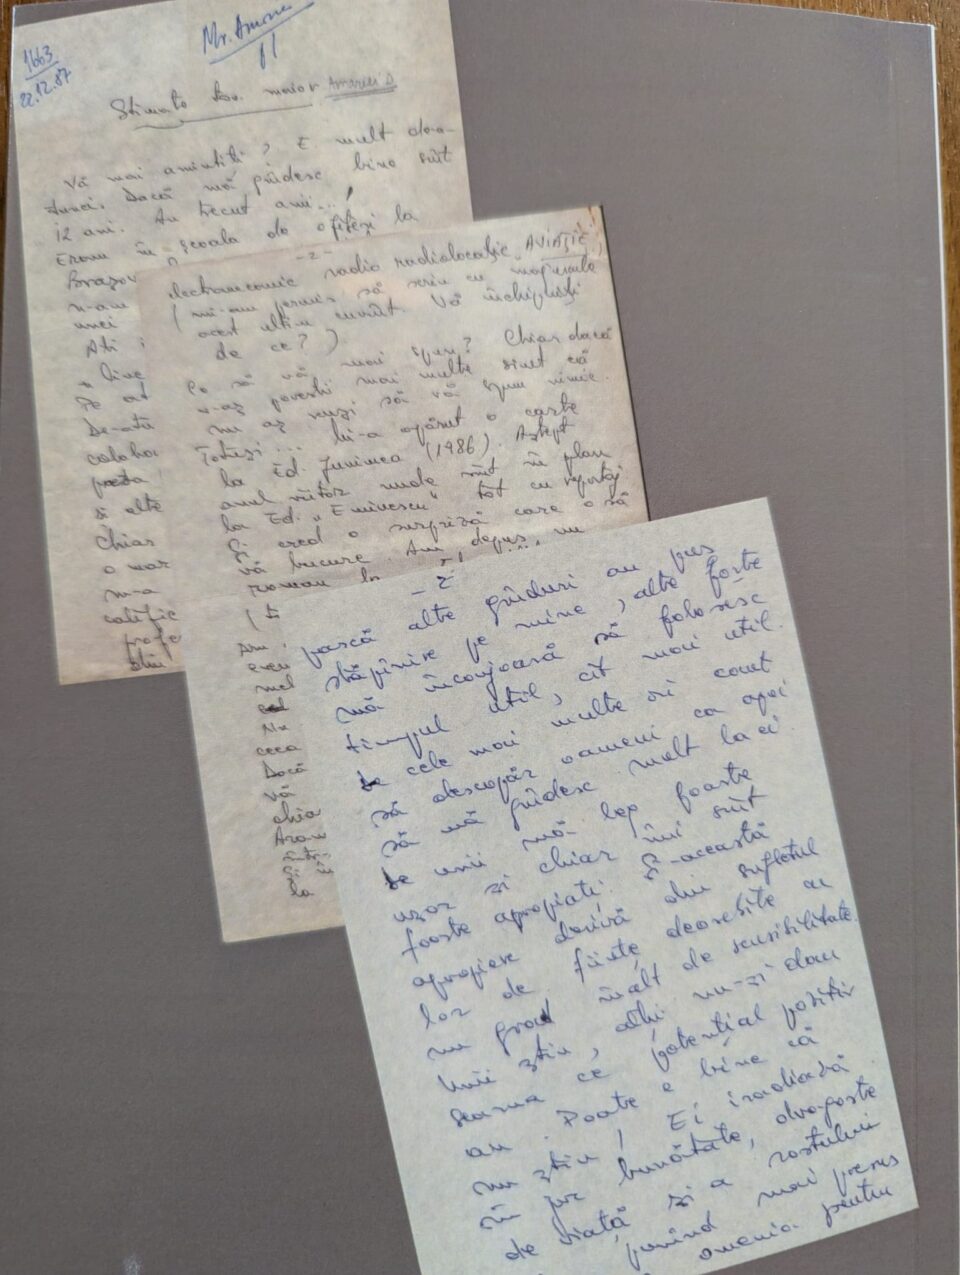 1663
22.12.87
Stimate tov. maior Amariei D.
Vă mai amintiți? E mult de a-
tunci. Dacă mă gîndesc bine sînt
12 ani. Au trecut anii...!
Eram în școala de ofițeri la
Brașov
n-am
unei
Ați
De
De-atu
poeta
și alte
Chiar
o mar
m-a
califíc
profe
știu
- 2 -
electromecanic radio radiolocație, AVIAȚIE,
(mi-am permis să scriu cu majuscule
acest ultim cuvînt. Vă închipuiți
de ce?)
Ce să vă mai spun? Chiar dacă
v-aș povesti mai multe simt că
nu aș reuși să vă spun nimic.
Totuși... Mi-a apărut o carte
la Ed. Junimea (1986). Aștept
anul viitor unde sînt în plan
la Ed. „Eminescu" tot cu reportaj
Și cred o surpriză care o să
vă bucure. Am depus un
roman la
Am
Nu
ceea
Dacă
vă
chia
Și
la
- 2 -
parcă alte gînduri au pus
stăpînire pe mine, alte forțe
mă înconjoară să folosesc
timpul util, cît mai util.
De cele mai multe ori caut
să descopăr oameni ca apoi
să mă gîndesc mult la ei.
De unii mă leg foarte
ușor și chiar îmi sînt
foarte apropiați. Și-această
apropiere derivă din sufletul
lor de ființe deosebite cu
un grad înalt de sensibilitate.
Unii știu, alții nu-și dau
seama ce potențial pozitiv
au. Poate e bine că
nu știu! Ei iradiază
în jur bunătate, dragoste
de viață și a rostului
punînd mai presus
omenia pentru